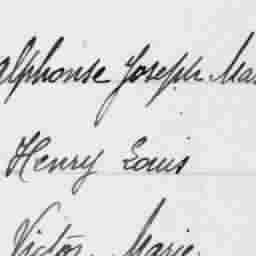 Alphonse Joseph Mar
Henry Louis
Victor Marie